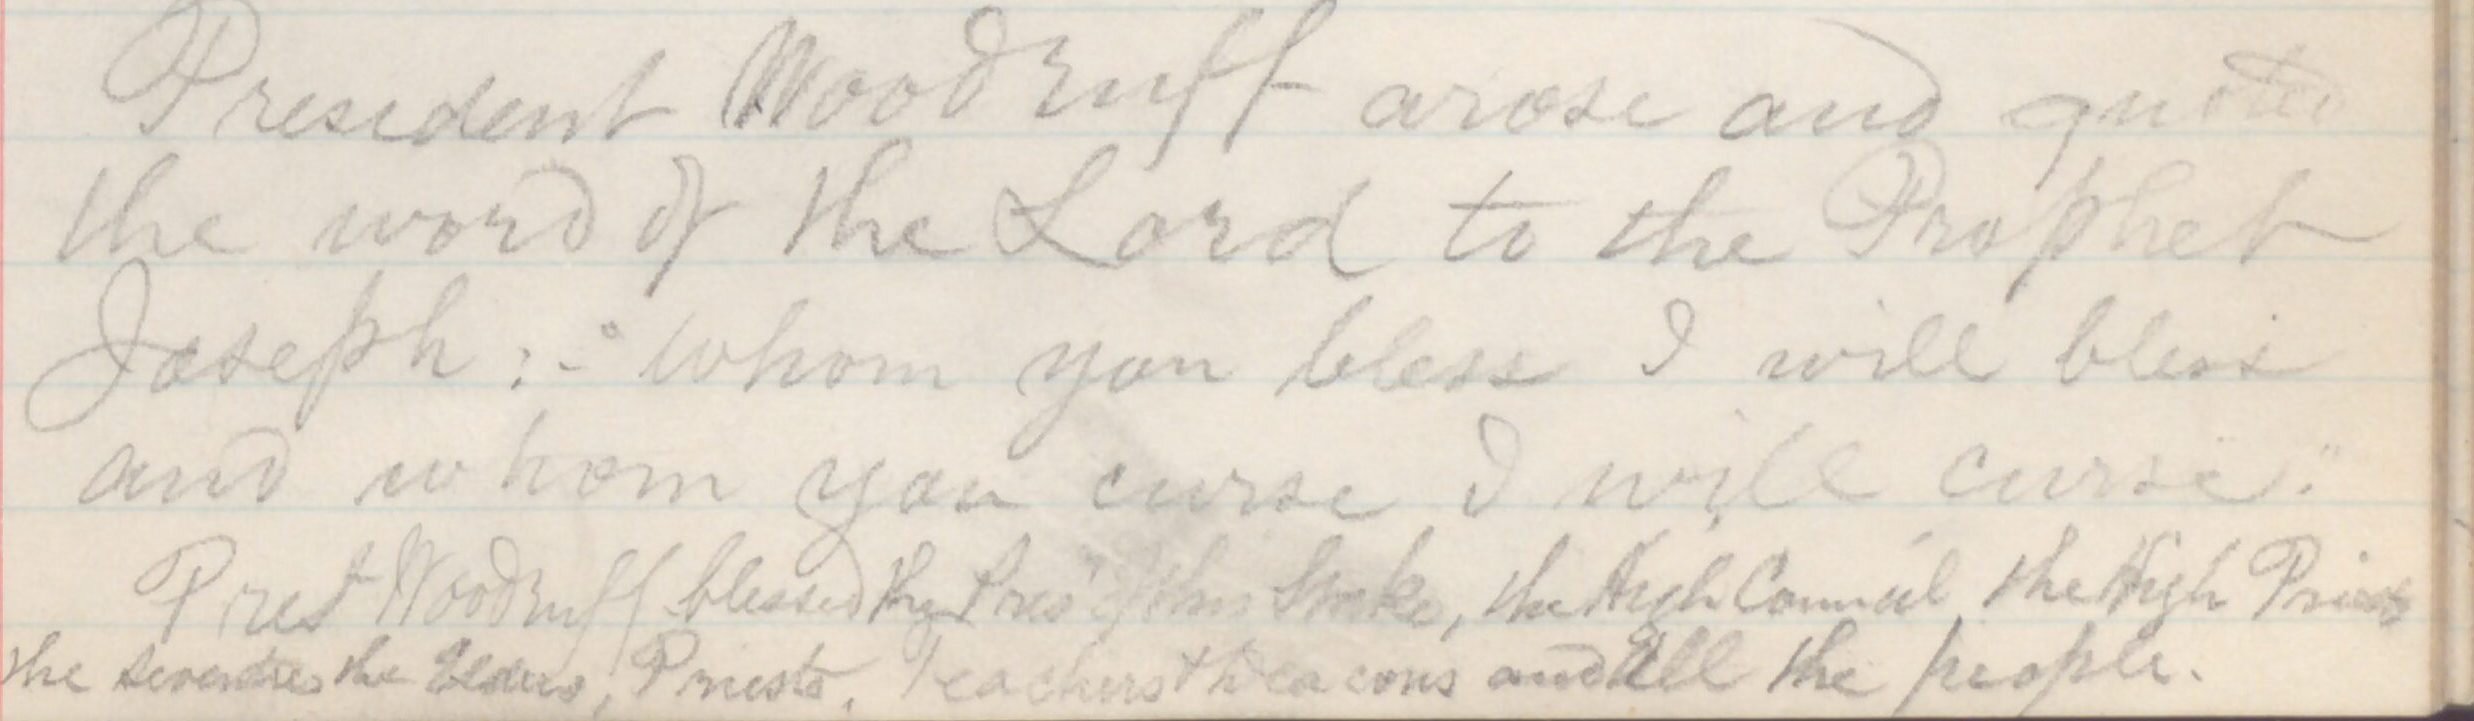 President Woodruff arose and quoted
the word of the Lord to the Prophet
Joseph:- "Whom you bless I will bless
and whom you curse I will curse."
Prest Woodruff blessed the Pres" of this Stake, the High Council the High Priests
the seventies the Elders, Priests, Teachers + Deacons and all the people.